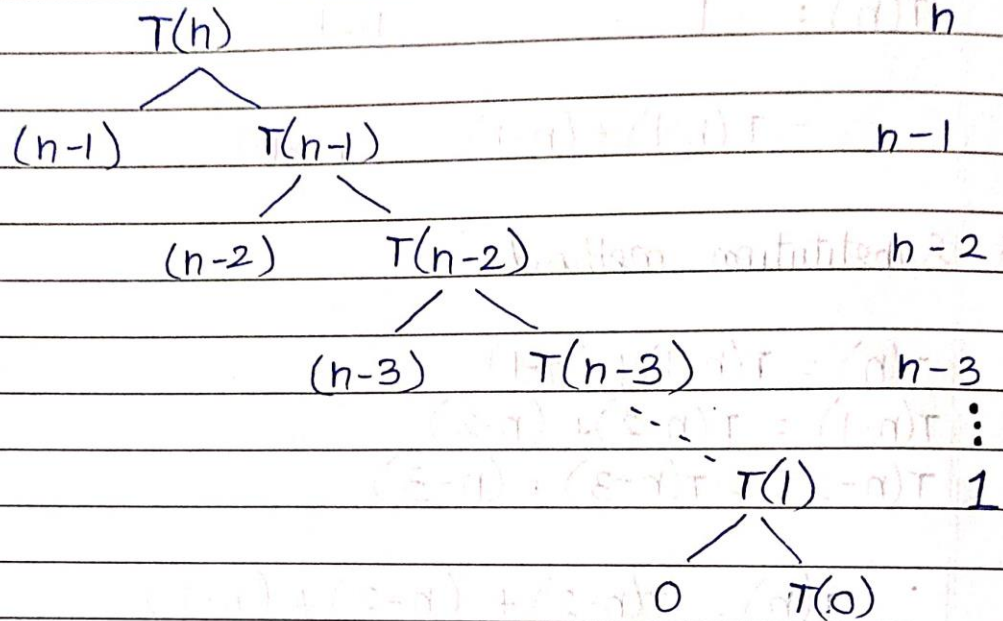 T(n) n
(n-1) T(n-1) n-1
(n-2) T(n-2) n-2
(n-3) T(n-3) n-3
⋮
T(1) 1
0 T(0)